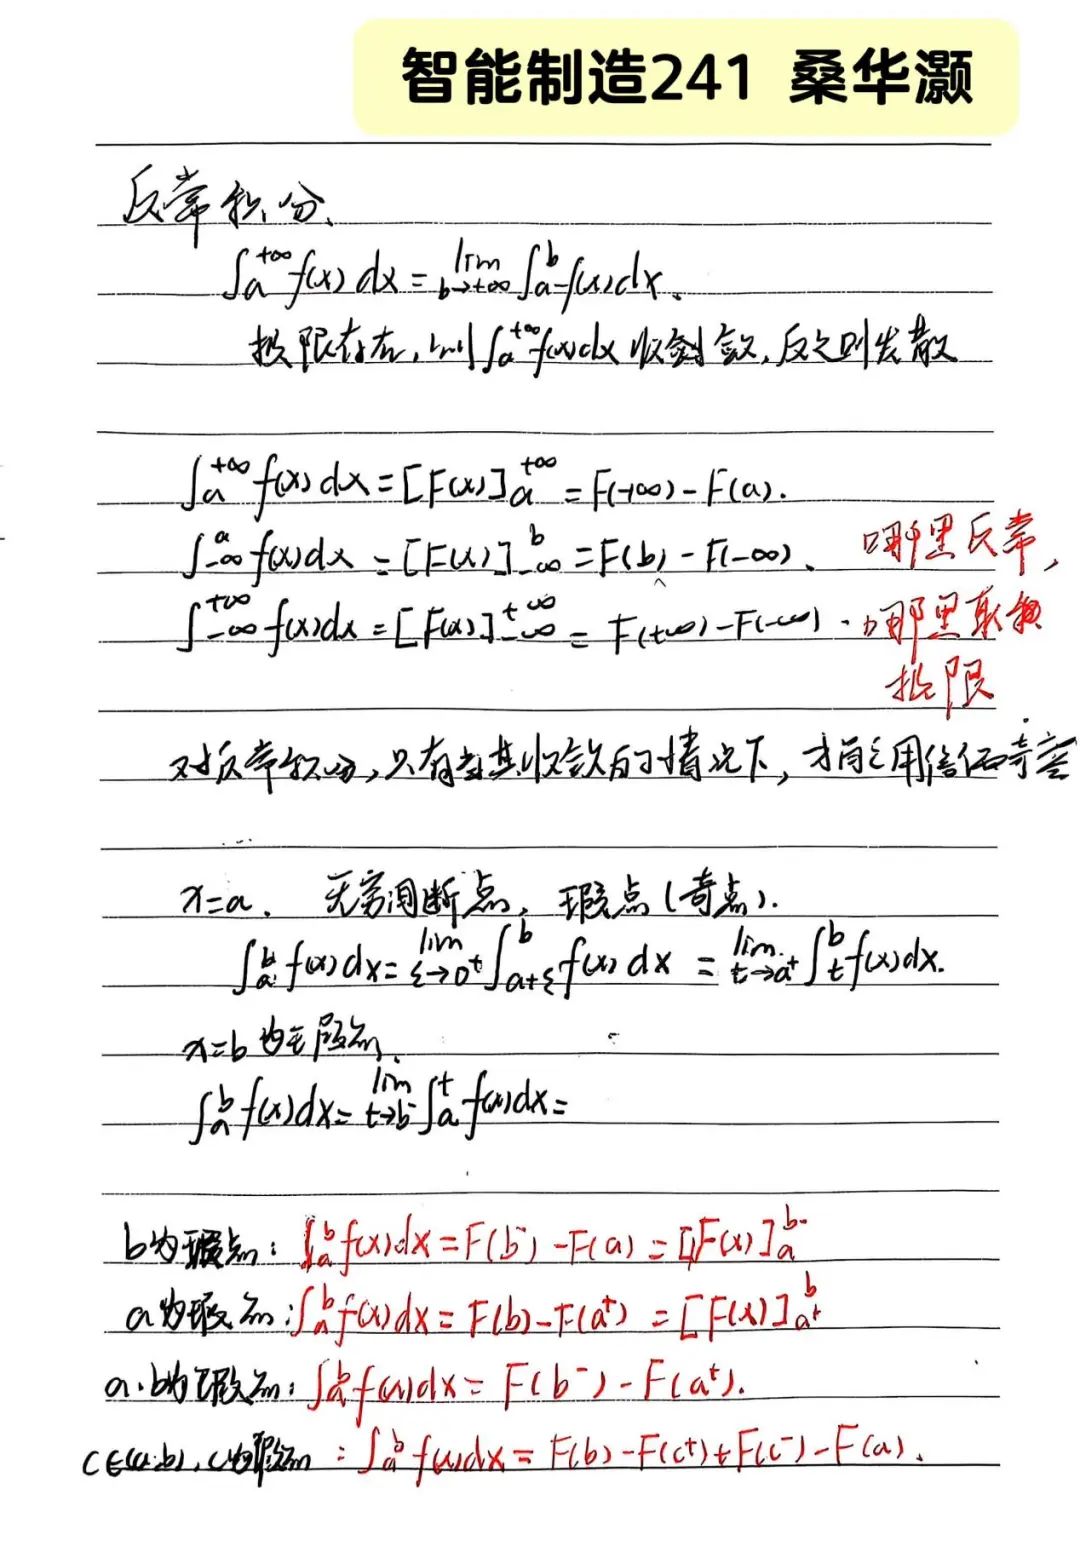 智能制造241 桑华灏
反常积分、
∫_a^{+∞} f(x) dx = lim_{b→+∞} ∫_a^b f(x) dx、
极限存在, 则 ∫_a^{+∞} f(x)dx 收敛, 反之则发散
∫_a^{+∞} f(x) dx = [F(x)]_a^{+∞} = F(+∞) - F(a).
∫_{-∞}^a f(x)dx = [F(x)]_{-∞}^b = F(b) - F(-∞)、 哪里反常,
∫_{-∞}^{+∞} f(x)dx = [F(x)]_{-∞}^{+∞} = F(+∞) - F(-∞). 哪里取
极限
对反常积分, 只有当其收敛的情况下, 才能用偶倍奇零
x=a、 无穷间断点, 瑕点(奇点).
∫_a^b f(x) dx = lim_{ε→0^+} ∫_{a+ε}^b f(x) dx = lim_{t→a^+} ∫_t^b f(x)dx.
x=b 为瑕点、
∫_a^b f(x) dx = lim_{t→b^-} ∫_a^t f(x)dx =
b为瑕点: ∫_a^b f(x)dx = F(b^-) - F(a) = [F(x)]_a^{b^-}
a为瑕点: ∫_a^b f(x)dx = F(b) - F(a^+) = [F(x)]_{a^+}^b
a.b为瑕点: ∫_a^b f(x)dx = F(b^-) - F(a^+).
C∈(a.b), c为瑕点 : ∫_a^b f(x)dx = F(b) - F(c^+) + F(c^-) - F(a).